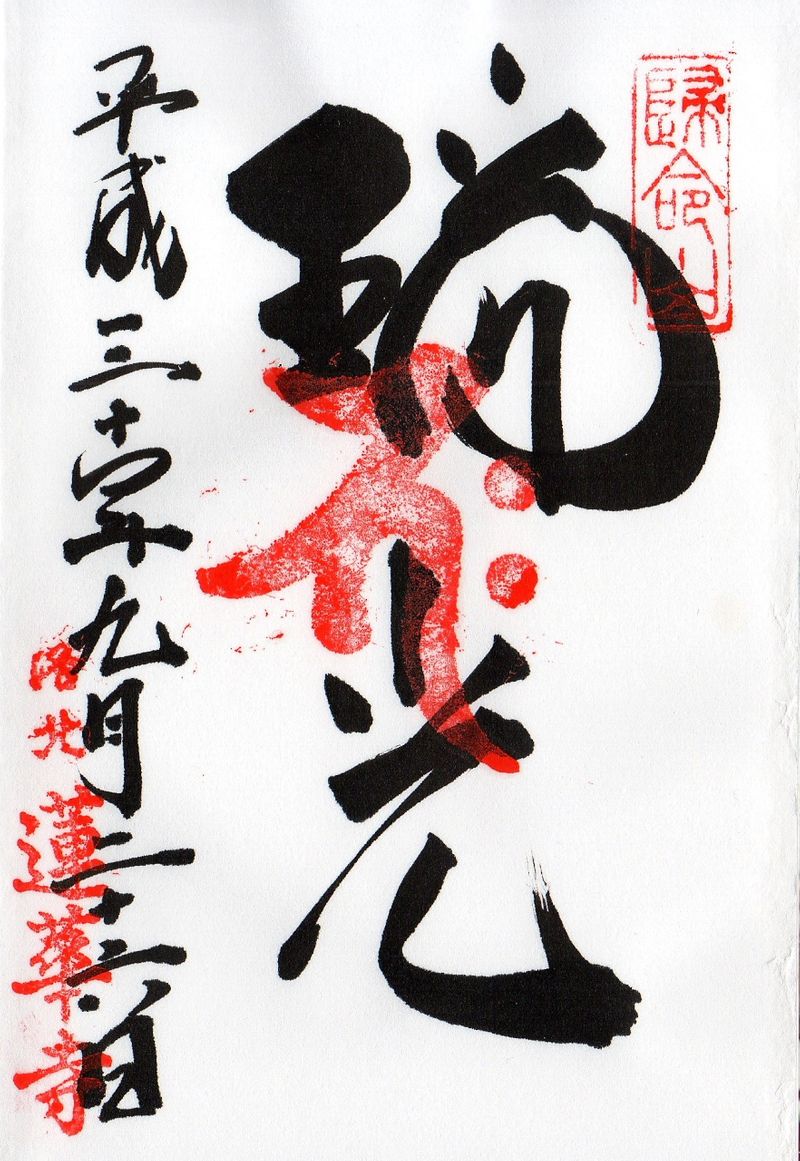 歸命山
瑞光
平成三十年九月二十六日
洛北 蓮華寺